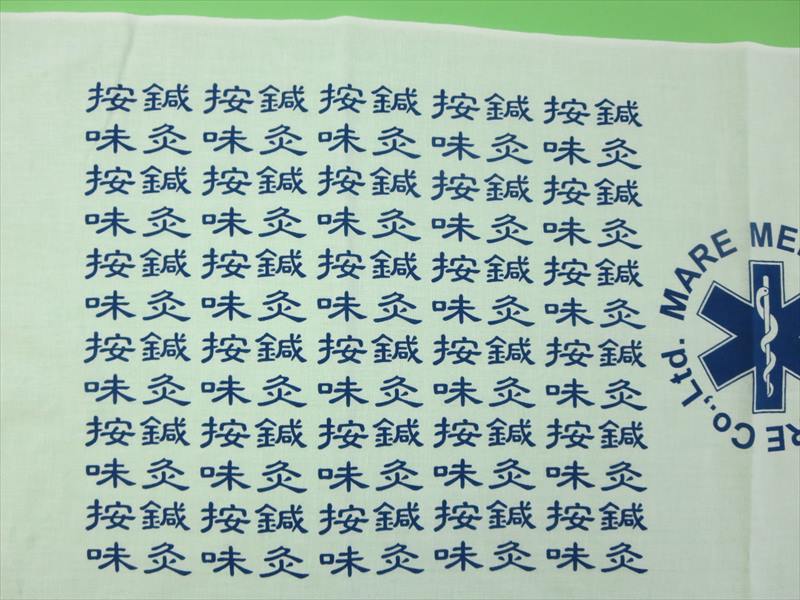 按鍼 按鍼 按鍼 按鍼 按鍼
味灸 味灸 味灸 味灸 味灸
按鍼 按鍼 按鍼 按鍼 按鍼
味灸 味灸 味灸 味灸 味灸
按鍼 按鍼 按鍼 按鍼 按鍼
味灸 味灸 味灸 味灸 味灸
按鍼 按鍼 按鍼 按鍼 按鍼
味灸 味灸 味灸 味灸 味灸
按鍼 按鍼 按鍼 按鍼 按鍼
味灸 味灸 味灸 味灸 味灸
按鍼 按鍼 按鍼 按鍼 按鍼
味灸 味灸 味灸 味灸 味灸
MARE
Co.,Ltd.